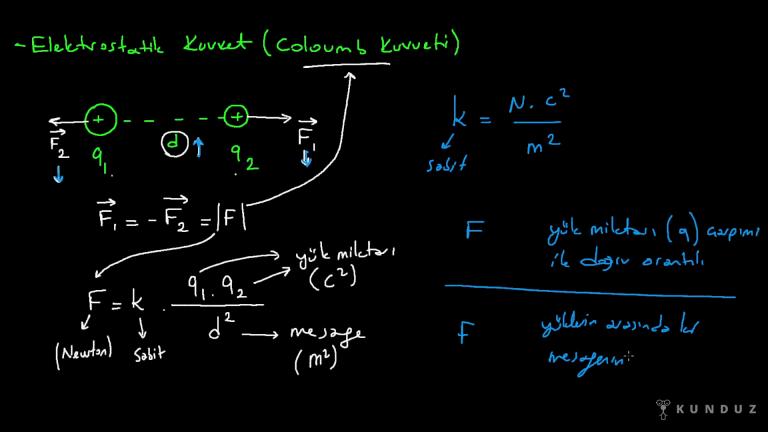 - Elektrostatik Kuvvet (Coloumb Kuvveti)
+ - - - - +
F₂ d F₁
q₁. q₂
F₁ = - F₂ = |F|
F = k . q₁. q₂ / d²
yük miktarı
(c²)
(Newton) Sabit
mesafe
(m²)
k = N. c² / m²
sabit
F yük miktarı (q) çarpımı
ile doğru orantılı
F yüklerin arasında ki
mesafenin
KUNDUZ